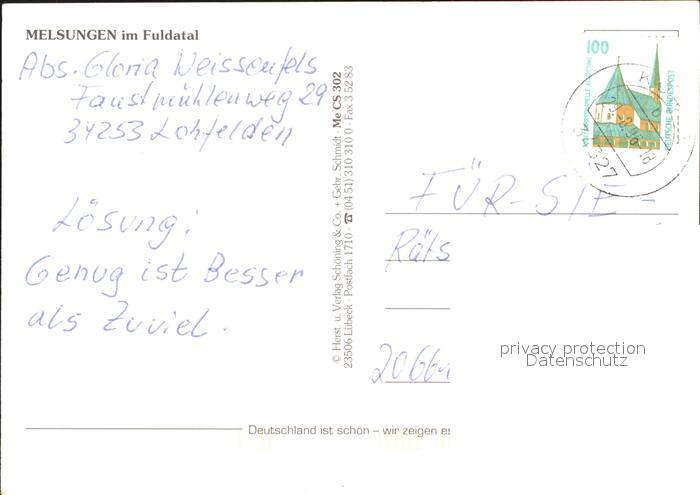 MELSUNGEN im Fuldatal
Abs. Gloria Weissenfels
Faustmühlenweg 29
34253 Lohfelden
Lösung:
Genug ist Besser
als Zuviel.
© Herst. u. Verlag Schöning & Co. + Gebr. Schmidt · Me CS 302
23506 Lübeck · Postfach 1710 · ☎ (04 51) 310 310 0 · Fax 3 52 83
100
DEUTSCHE BUNDESPOST
FÜR-SIE-
Räts
privacy protection
Datenschutz
Deutschland ist schön – wir zeigen es